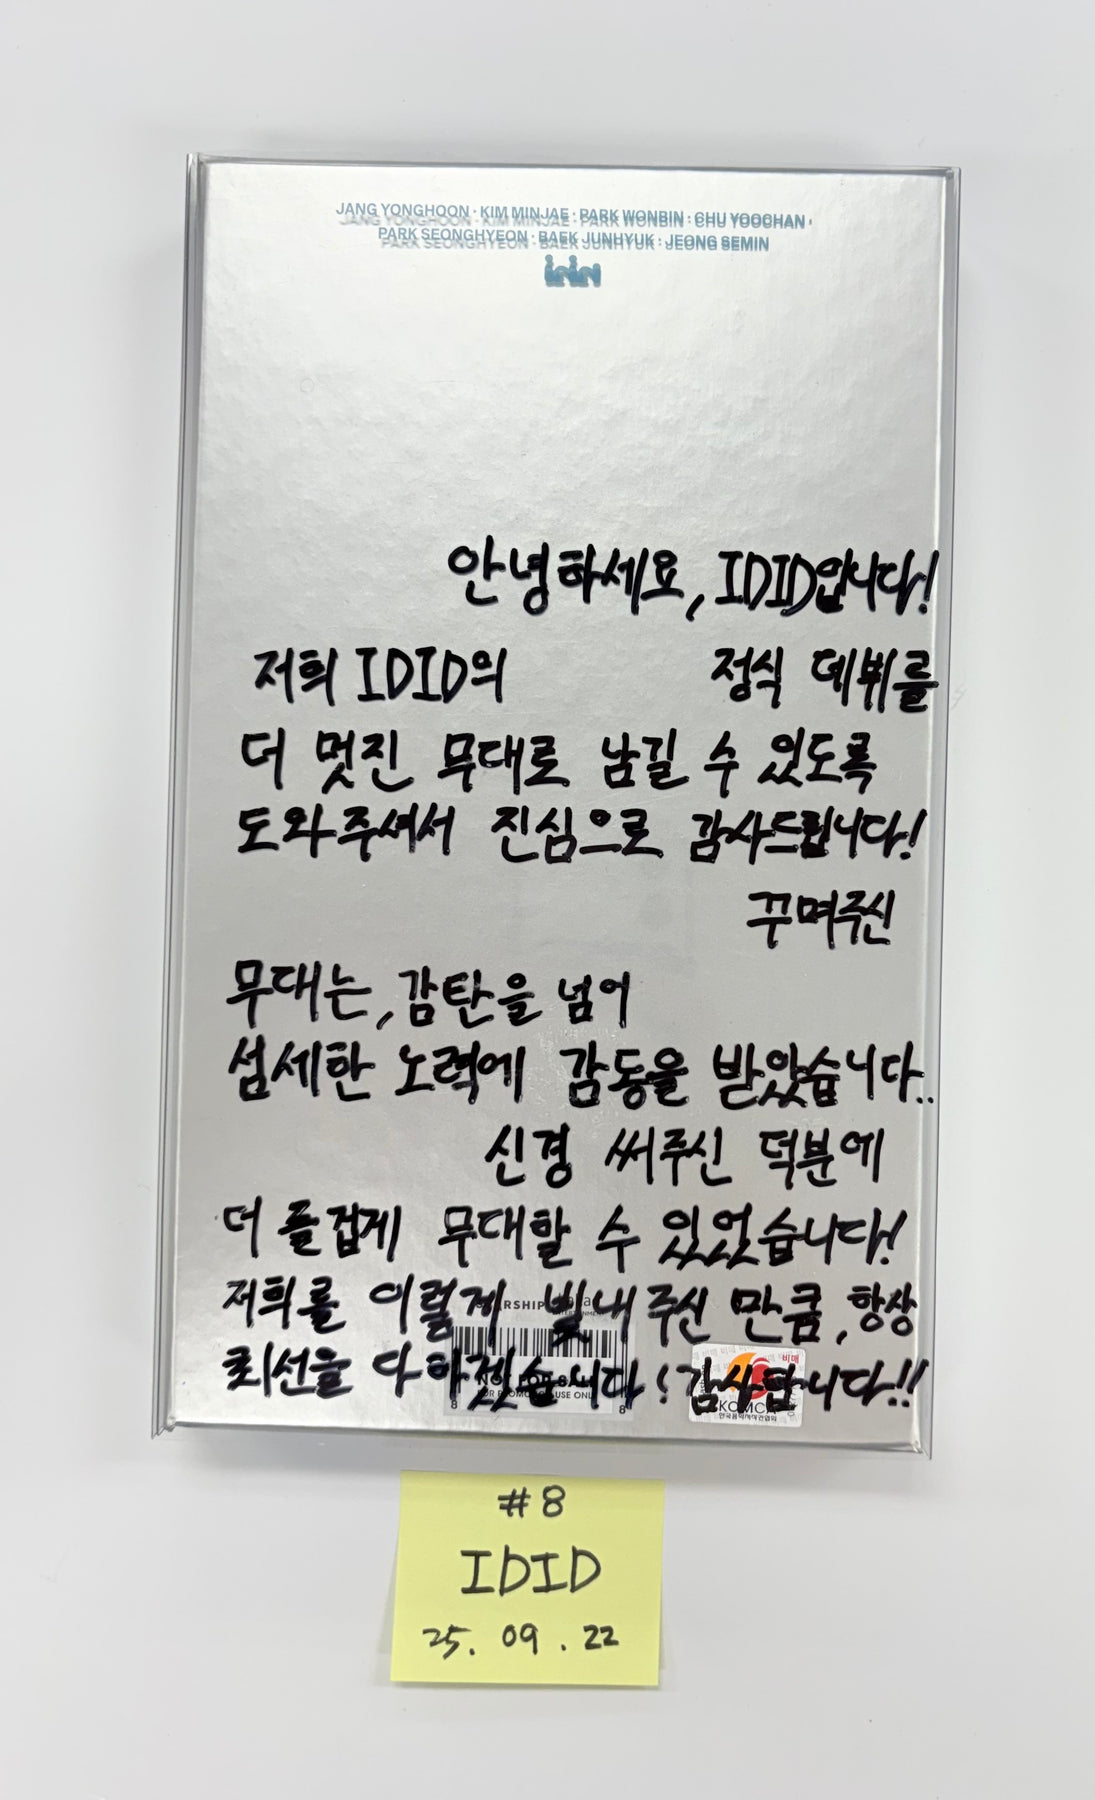 JANG YONGHOON · KIM MINJAE · PARK WONBIN · CHU YOOCHAN ·
PARK SEONGHYEON · BAEK JUNHYUK · JEONG SEMIN
안녕하세요, IDID입니다!
저희 IDID의 정식 데뷔를
더 멋진 무대로 남길 수 있도록
도와주셔서 진심으로 감사드립니다!
꾸며주신
무대는, 감탄을 넘어
섬세한 노력에 감동을 받았습니다..
신경 써주신 덕분에
더 즐겁게 무대할 수 있었습니다!
저희를 이렇게 빛내주신 만큼, 항상
최선을 다하겠습니다! 감사합니다!!
비매
NOT FOR SALE
FOR PROMOTION USE ONLY
8 8
KOMCA
한국음악저작권협회
#8
IDID
25. 09. 22